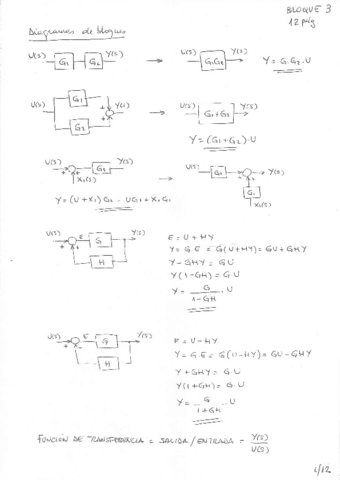 BLOQUE 3
12 pág
Diagramas de bloques
U(s) G1 G2 Y(s) → U(s) G1G2 Y(s) Y = G1·G2·U
U(s) G1 G2 Y(s) + + → U(s) G1+G2 Y(s)
Y = (G1+G2)·U
U(s) + + X1(s) G2 Y(s) → U(s) Y(s) + + G1 X1(s)
U(s) + + E G H Y(s)
E = U + HY
Y = G·E = G(U+HY) = GU + GHY
Y - GHY = GU
Y(1-GH) = G·U
Y = G / 1-GH · U
U(s) + - E G H Y(s)
E = U - HY
Y = G·E = G(U-HY) = GU - GHY
Y + GHY = G·U
Y(1+GH) = G·U
Y = G / 1+GH · U
FUNCIÓN DE TRANSFERENCIA = SALIDA / ENTRADA = Y(s) / U(s)
1/12